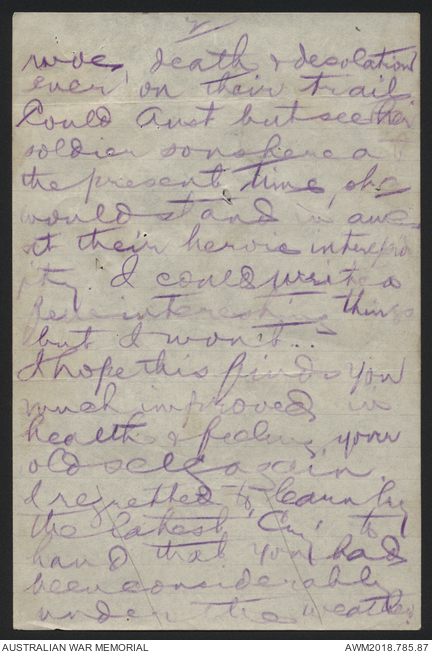 2
woe, death & desolation
ever on their trail.
Could Aust but see her
soldier sons here at
the present time, she
would stand in awe
at their heroic
I could write a
few interesting things
but I won't. –
I hope this finds you
much improved in
health & feeling your
old self again.
I regretted to learn by
the latest to
hand that you had
been considerably
under the weather
AUSTRALIAN WAR MEMORIAL
AWM2018.785.87